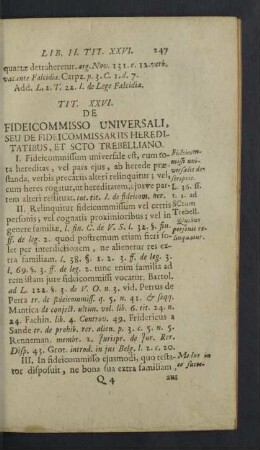 LIB. II. TIT. XXVI. 247
quartæ detraheretur. arg. Nov. 131. c. 12. verb.
vacante Falcidia. Carpz. p. 3. C. 1. d. 7.
Add. L. 2. T. 22. l. de Lege Falcidia.
TIT. XXVI.
DE
FIDEICOMMISSO UNIVERSALI,
SEU DE FIDEICOMMISSARIIS HEREDI-
TATIBUS, ET SCTO TREBELLIANO.
I. Fideicommissum universale est, cum to-
ta hereditas, vel pars ejus, ab herede præ-
standa, verbis precariis alteri relinquitur; vel
cum heres rogatur, ut hereditatem, ejusve par-
tem alteri restituat. tot. tit. l. de fideicom. her.
Fideicom-
missi uni-
versalis de-
scriptio.
L. 36. ff.
t. 1. ad
SCtum
Trebell.
II. Relinquitur fideicommissum vel certis
personis; vel cognatis proximioribus; vel in
genere familiæ, l. fin. C. de V. S. l. 32. §. fin.
ff. de leg. 2. quod postremum etiam fieri so-
let per interdictionem, ne alienetur res ex-
tra familiam. l. 38. §. 1. 2. 3. ff. de leg. 3.
l. 69. §. 3. ff. de leg. 2. tunc enim familia ad
rem istam jure fideicommissi vocatur. Bartol.
ad L. 122. §. 3. de V. O. n. 3. vid. Petrus de
Petra tr. de fideicommiss. q. 5. n. 41. & seqq.
Mantica de conject. ultim. vol. lib. 6. tit. 24. n.
24. Fachin. lib. 4. Controv. 49. Fridericus a
Sande tr. de prohib. rer. alien. p. 3. c. 5. n. 5.
Renneman. membr. 2. Jurispr. de Jur. Rer.
Disp. 43. Grot. introd. in jus Belg. l. 2. c. 20.
personis re-
linquatur.
III. In fideicommisso ejusmodi, quo testa-
tor disposuit, ne bona sua extra familiam
Modus in
Q 4 aut